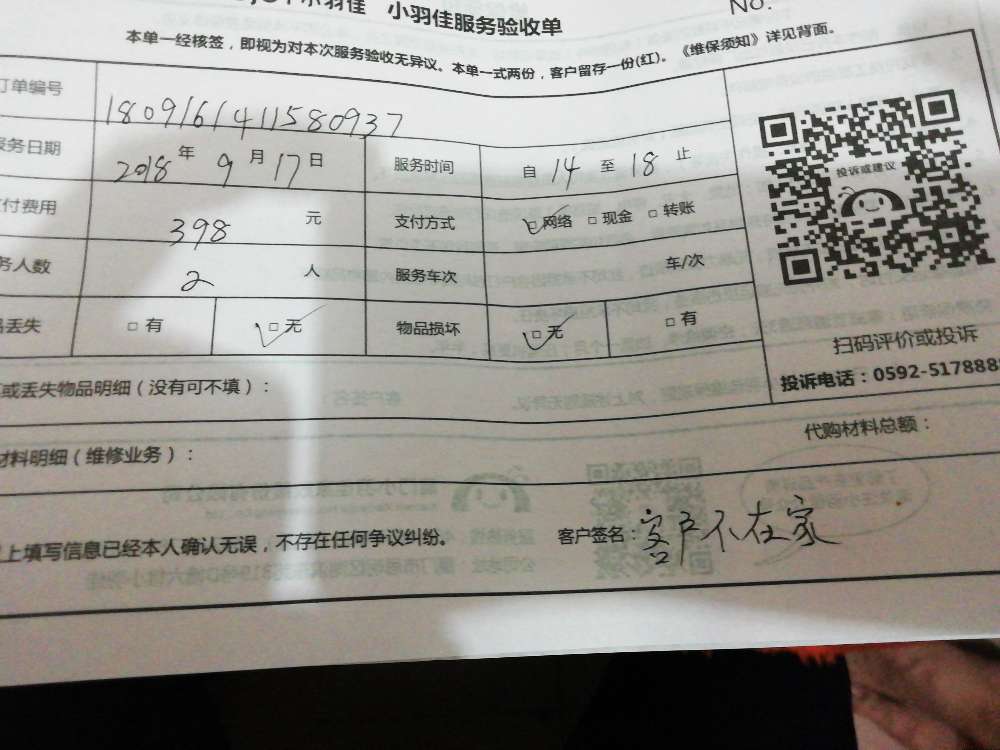 小羽佳 小羽佳服务验收单
No.
本单一经核签，即视为对本次服务验收无异议。本单一式两份，客户留存一份(红)。《维保须知》详见背面。
订单编号 1809161411580937
服务日期 2018 年 9 月 17 日 服务时间 自 14 至 18 止
投诉或建议
付费用 398 元 支付方式 ☑网络 □现金 □转账
务人数 2 人 服务车次 车/次
丢失 □有 ☑无 物品损坏 ☑无 □有
扫码评价或投诉
或丢失物品明细（没有可不填）：
投诉电话：0592-517888
材料明细（维修业务）：
代购材料总额：
上填写信息已经本人确认无误，不存在任何争议纠纷。 客户签名：客户不在家